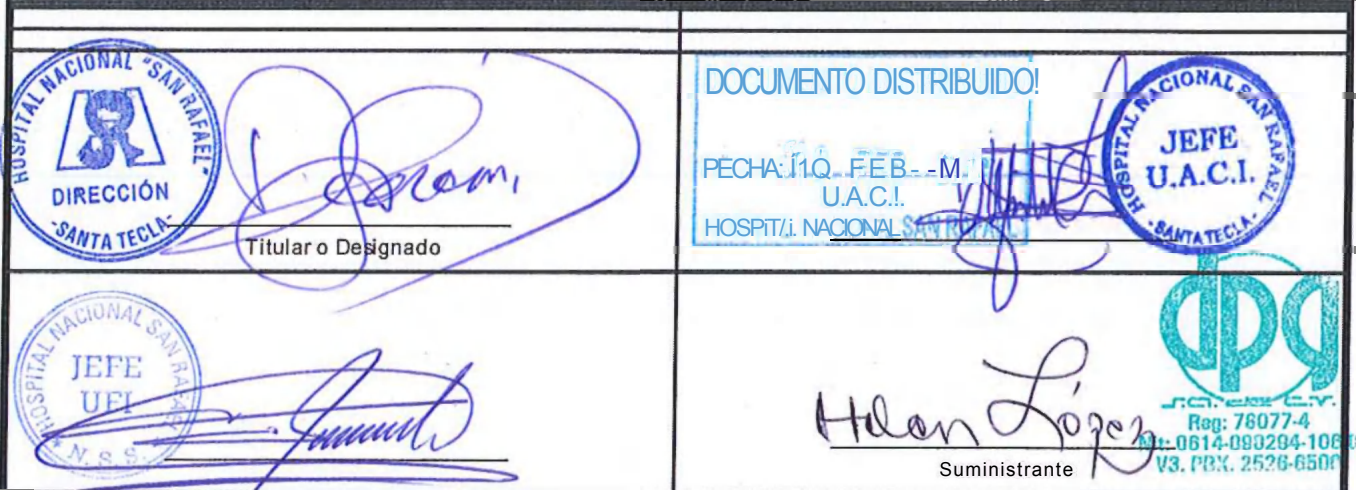 HOSPITAL NACIONAL "SAN RAFAEL"
DIRECCIÓN
-SANTA TECLA-
Titular o Designado
DOCUMENTO DISTRIBUIDO!
PECHA: Í1Q..FEB--M.
U.A.C.!.
HOSPiT/.i. NACIONAL SAN RAFAEL
HOSPITAL NACIONAL SAN RAFAEL
JEFE
U.A.C.I.
-SANTA TECLA-
HOSPITAL NACIONAL SAN RAFAEL
JEFE
UFI
N.S.S.
Helen López
Suministrante
dpg
Reg: 78077-4
V3. PBX. 2526-6500